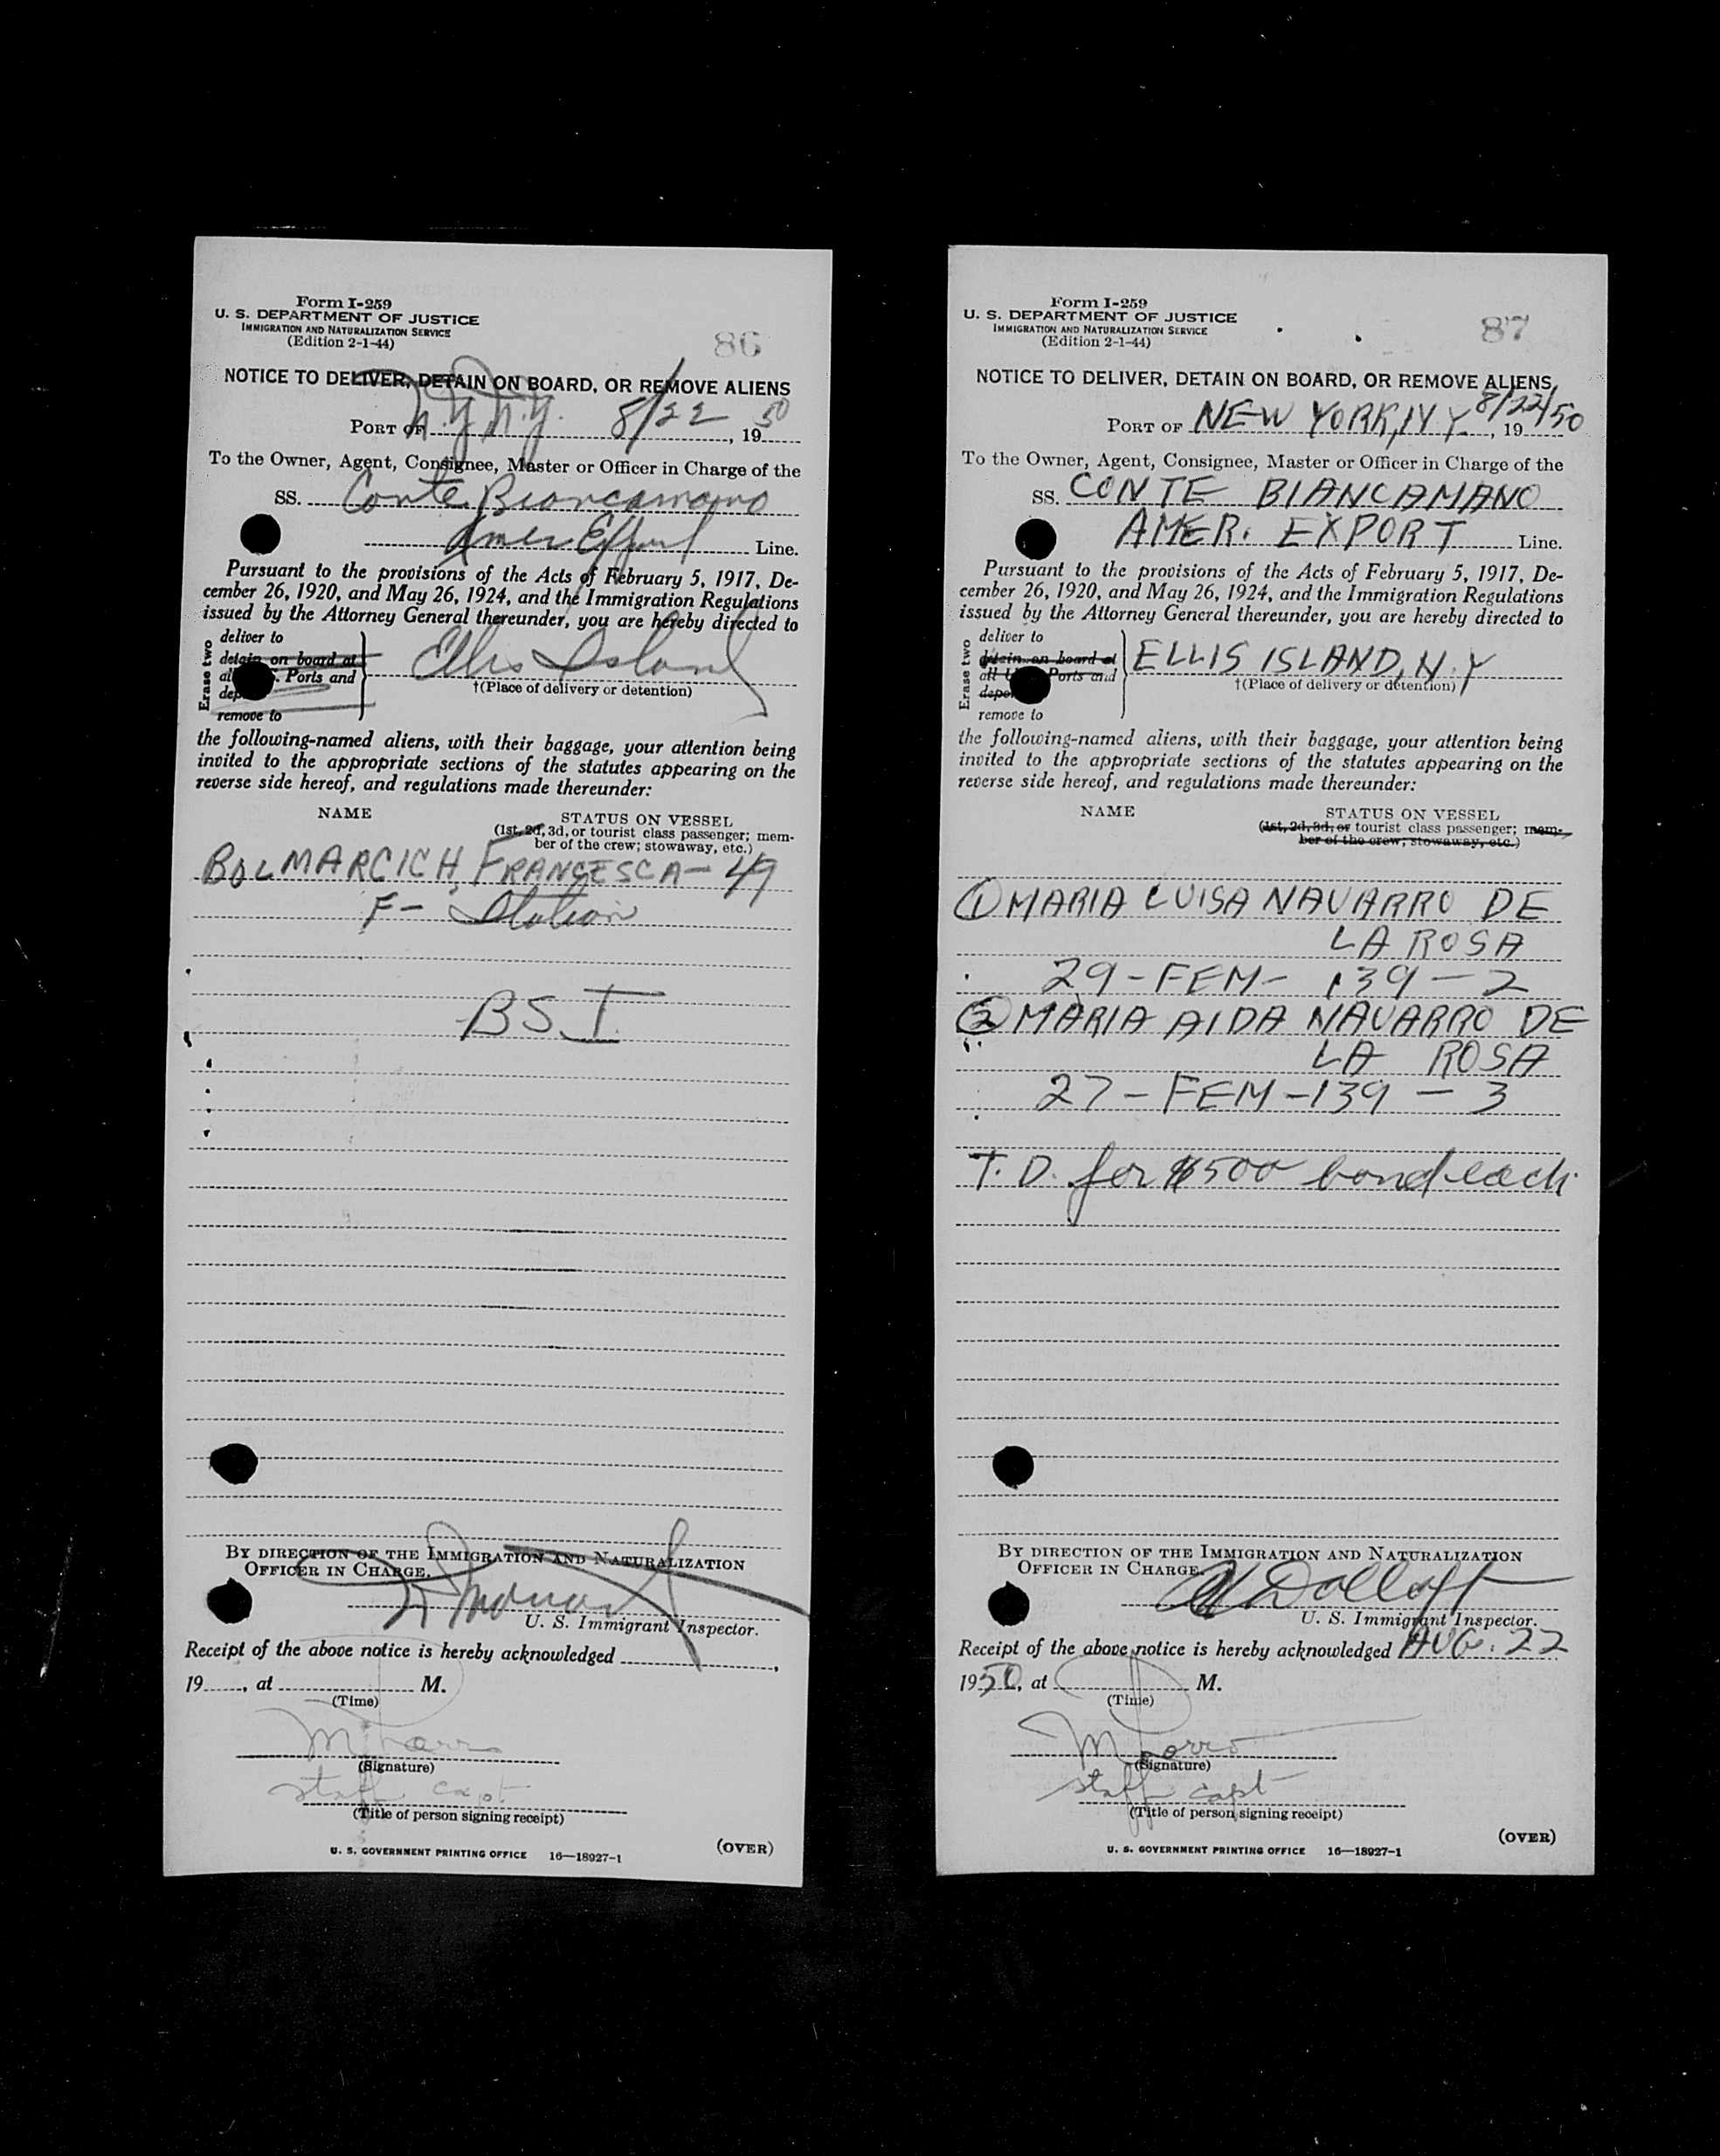 Form I-259
U. S. DEPARTMENT OF JUSTICE
IMMIGRATION AND NATURALIZATION SERVICE
(Edition 2-1-44)
86
NOTICE TO DELIVER, DETAIN ON BOARD, OR REMOVE ALIENS
PORT OF N.Y. N.Y. 8/22, 1950
To the Owner, Agent, Consignee, Master or Officer in Charge of the
SS. Conte Biancamano
Amer Export Line.
Pursuant to the provisions of the Acts of February 5, 1917, De-
cember 26, 1920, and May 26, 1924, and the Immigration Regulations
issued by the Attorney General thereunder, you are hereby directed to
Erase two
deliver to
detain on board at
Ports and
remove to
Ellis Island
†(Place of delivery or detention)
the following-named aliens, with their baggage, your attention being
invited to the appropriate sections of the statutes appearing on the
reverse side hereof, and regulations made thereunder:
NAME STATUS ON VESSEL
(1st, 2d, 3d, or tourist class passenger; mem-
ber of the crew; stowaway, etc.)
BOLMARCICH, FRANCESCA - 49
F-
BSI
BY DIRECTION OF THE IMMIGRATION AND NATURALIZATION
OFFICER IN CHARGE.
U. S. Immigrant Inspector.
Receipt of the above notice is hereby acknowledged
19, at M.
(Time)
(Signature)
Staff Capt.
(Title of person signing receipt)
U. S. GOVERNMENT PRINTING OFFICE 16—18927-1
(OVER)
Form I-259
U. S. DEPARTMENT OF JUSTICE
IMMIGRATION AND NATURALIZATION SERVICE
(Edition 2-1-44)
87
NOTICE TO DELIVER, DETAIN ON BOARD, OR REMOVE ALIENS
PORT OF NEW YORK, N Y 8/22/50, 19
To the Owner, Agent, Consignee, Master or Officer in Charge of the
SS. CONTE BIANCAMANO
AMER. EXPORT Line.
Pursuant to the provisions of the Acts of February 5, 1917, De-
cember 26, 1920, and May 26, 1924, and the Immigration Regulations
issued by the Attorney General thereunder, you are hereby directed to
Erase two
deliver to
detain on board at
all Ports and
remove to
ELLIS ISLAND, N.Y
†(Place of delivery or detention)
the following-named aliens, with their baggage, your attention being
invited to the appropriate sections of the statutes appearing on the
reverse side hereof, and regulations made thereunder:
NAME STATUS ON VESSEL
(1st, 2d, 3d, or tourist class passenger; mem-
ber of the crew; stowaway, etc.)
① MARIA LUISA NAVARRO DE
LA ROSA
29-FEM- 139-2
② MARIA AIDA NAVARRO DE
LA ROSA
27-FEM-139-3
T. D. for $500 bond each.
BY DIRECTION OF THE IMMIGRATION AND NATURALIZATION
OFFICER IN CHARGE.
U. S. Immigrant Inspector.
Receipt of the above notice is hereby acknowledged AUG. 22
1950, at M.
(Time)
(Signature)
Staff Capt
(Title of person signing receipt)
U. S. GOVERNMENT PRINTING OFFICE 16—18927-1
(OVER)